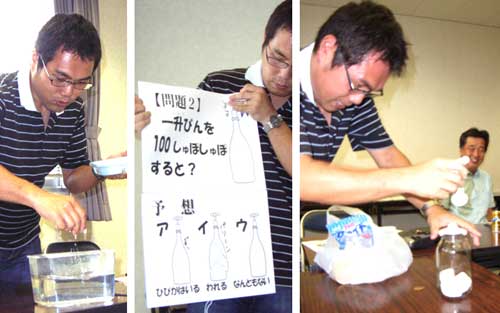 【問題2】
一升びんを
100しゅぽしゅぽ
すると?
予想
ア イ ウ
ひびがはいる われる なんともない